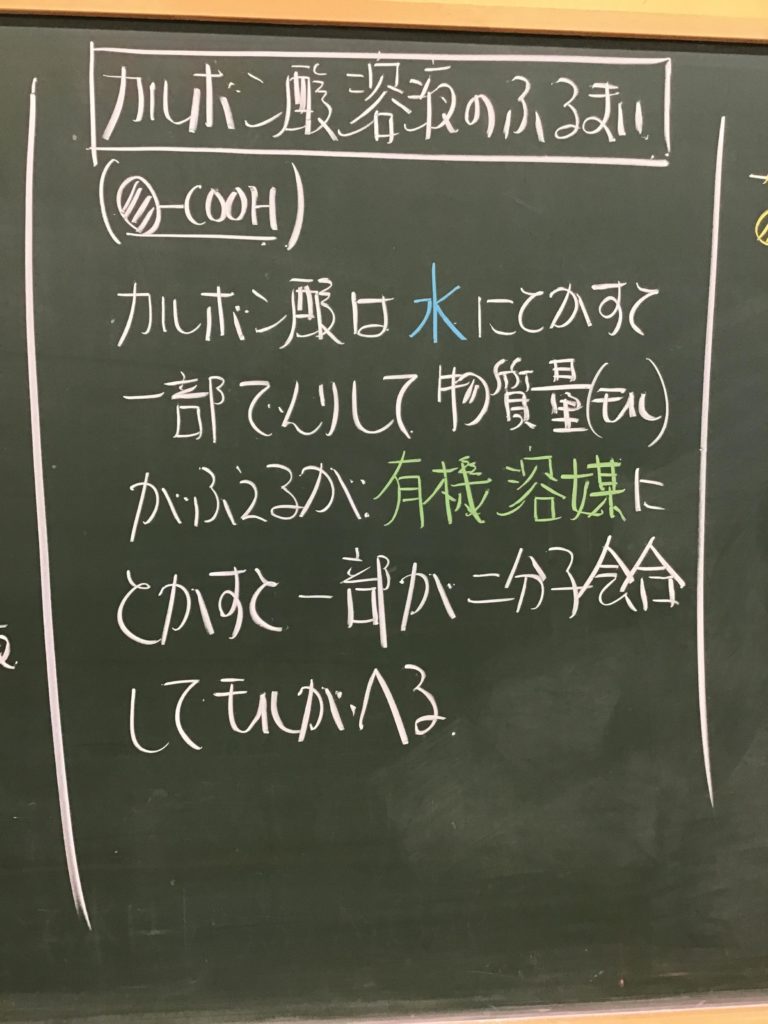 カルボン酸溶液のふるまい
(-COOH)
カルボン酸は水にとかすと
一部でんりして物質量(モル)
がふえるが、有機溶媒に
とかすと一部が二分子会合
してモルがへる.